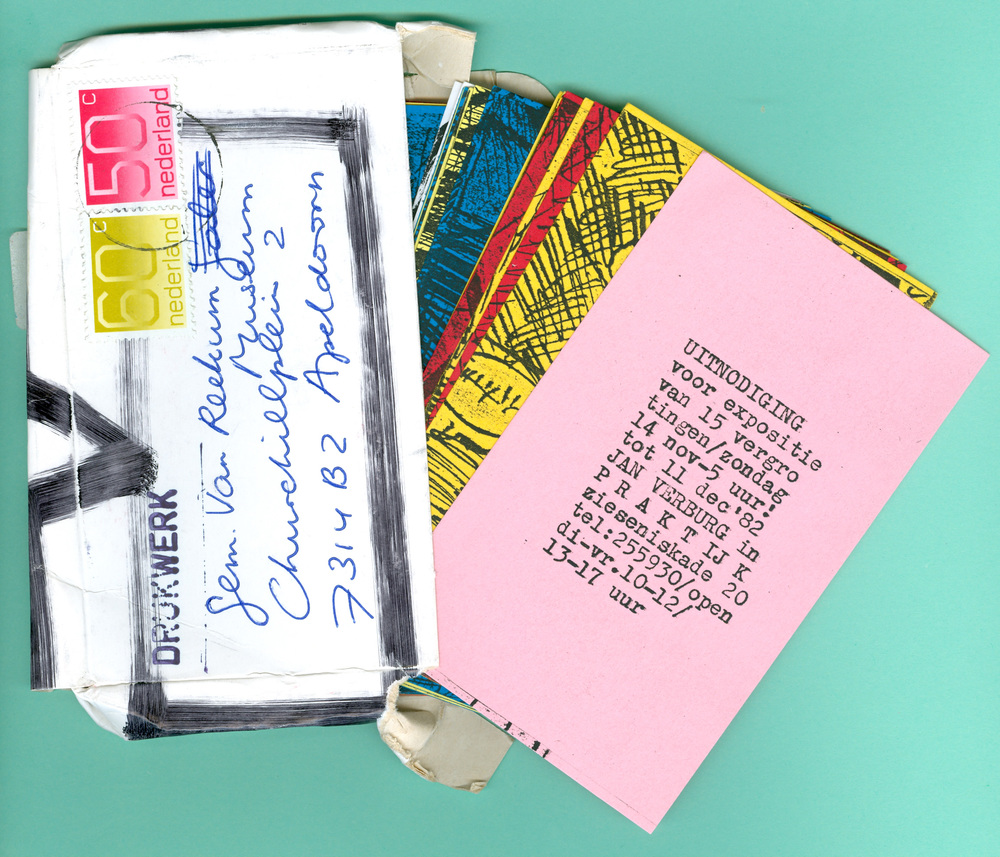 50 c
nederland
60 c
nederland
DRUKWERK
Gem. Van Reekum
Museum
Churchillplein 2
7314 BZ Apeldoorn
UITNODIGING
voor expositie
van 15 vergro
tingen/zondag
14 nov-5 uur!
tot 11 dec'82
JAN VERBURG in
P R A K T IJ K
zieseniskade 20
tel:255930/open
di-vr.10-12/
13-17 uur